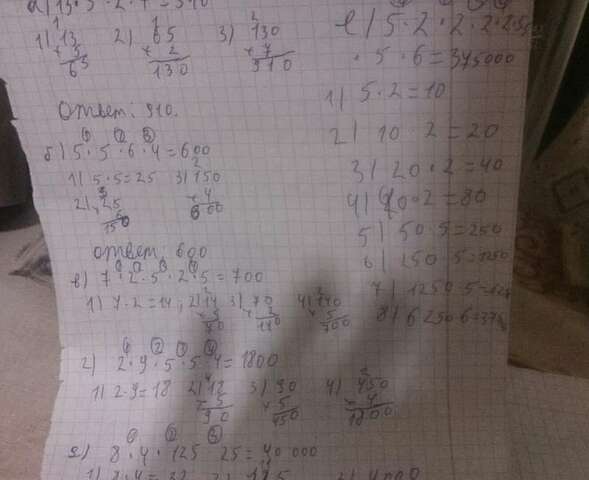 1) 13 2) 65 3) 130
× 5 × 2 × 7
65 130 910
Ответ: 910.
б) 5 · 5 · 6 · 4 = 600
1) 5 · 5 = 25 3) 150
2) 25 × 4
6 600
150
ответ: 600
в) 7 · 2 · 5 · 2 · 5 = 700
1) 7 · 2 = 14; 2) 14 3) 70 4) 140
× 5 × 2 × 5
70 140 700
г) 2 · 9 · 5 · 5 · 4 = 1800
1) 2 · 9 = 18 2) 18 3) 90 4) 450
× 5 × 5 × 4
90 450 1800
д) 8 · 4 · 125 · 25 = 40 000
е) 5 · 2 · 2 · 2 · 2 · 5
· 5 · 6 = 375000
1) 5 · 2 = 10
2) 10 · 2 = 20
3) 20 · 2 = 40
4) 40 · 2 = 80
5) 50 · 5 = 250
6) 250 · 5 = 1250
7) 1250 · 5 =
8) 6250 · 6 =